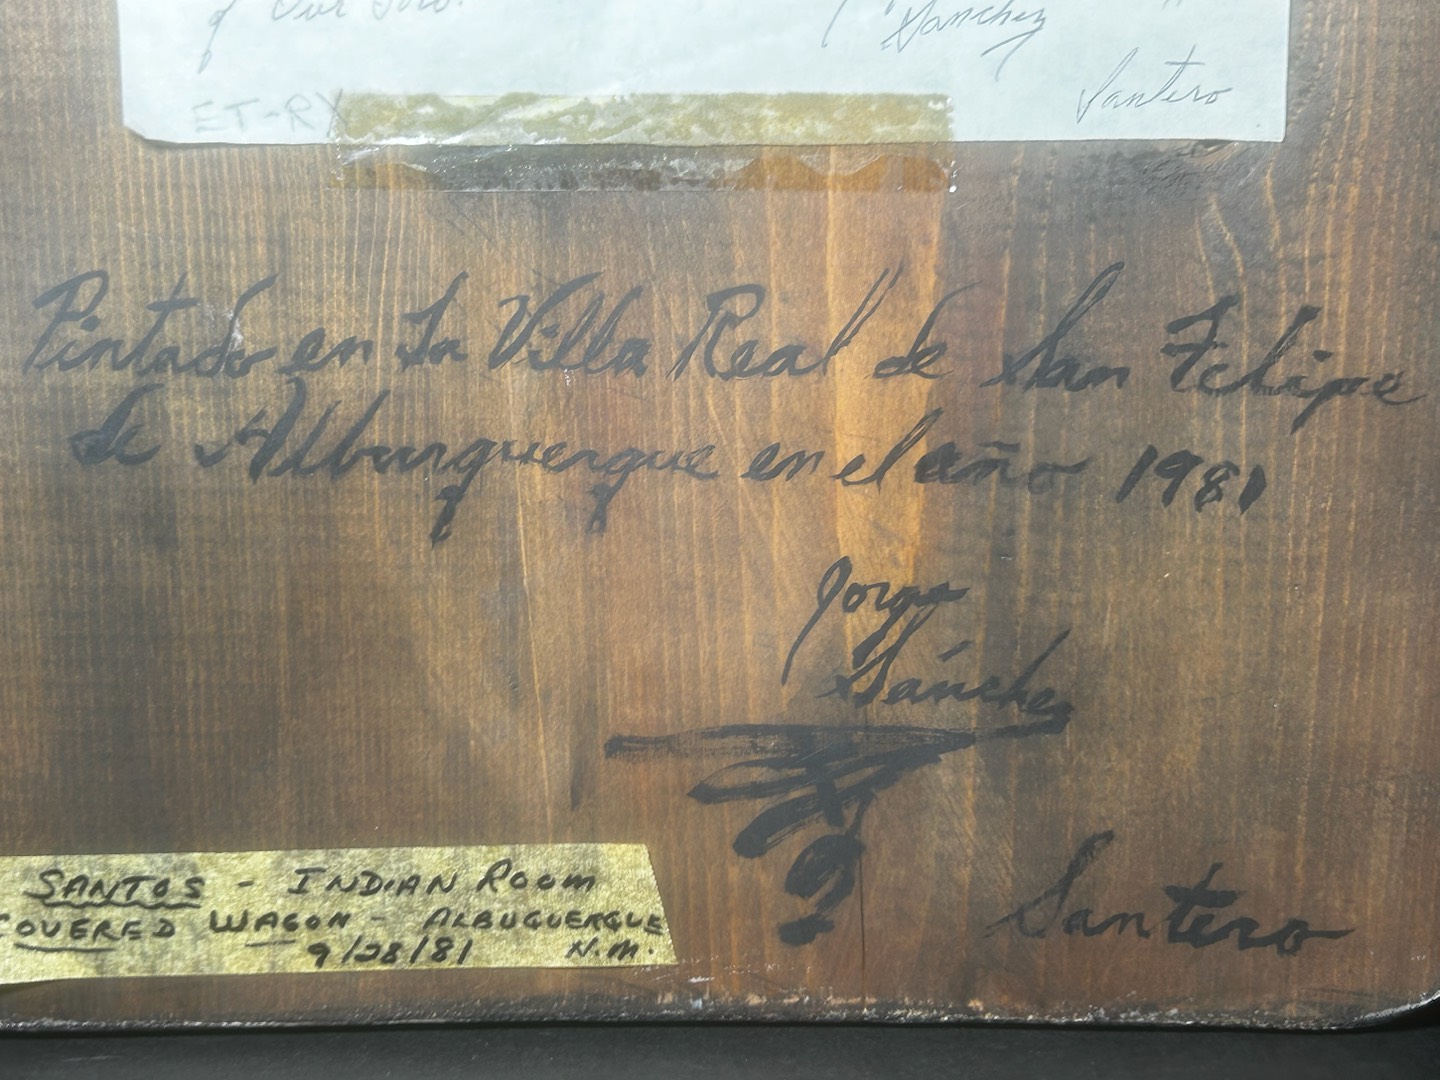 of Our Lord.
Sanchez
Santero
ET-RX
Pintado en La Villa Real de San Felipe
de Alburquerque en el año 1981
Jorge
Sánchez
Santero
SANTOS - INDIAN ROOM
COVERED WAGON - ALBUQUERQUE
9/28/81 N.M.